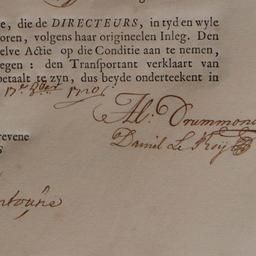 e, die de DIRECTEURS, in tyd en wyle
oren, volgens haar origineelen Inleg. Den
elve Actie op die Conditie aan te nemen,
egen: den Transportant verklaart van
etaalt te zyn, dus beyde onderteekent in
1720
Drummond
revene
Daniel Le Roy
S